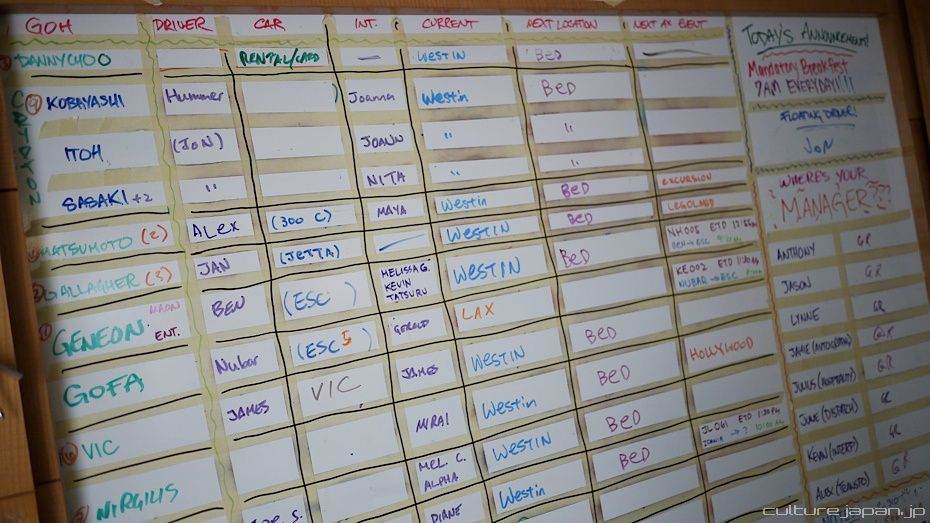 GOH DRIVER CAR INT. CURRENT NEXT LOCATION NEXT AX EVENT
DANNYCHOO RENTAL/CARD — WESTIN BED
KOBAYASHI Hummer Joanna Westin BED
ITOH (JON) JOANN " "
SASAKI +2 " NITA " "
MATSUMOTO (2) ALEX (300 C) MAYA Westin BED EXCURSION
GALLAGHER (3) JAN (JETTA) — WESTIN BED LEGOLAND
GENEON ENT. BEN (ESC) MELISSA G. KEVIN TATSURU WESTIN BED NH005 ETD
GOFA Nubar (ESC) GEROLD LAX KE002 ETD
NUBAR → ESC
VIC JAMES VIC JAMES WESTIN BED HOLLYWOOD
NIRGILIS MIRAI Westin BED
MEL. C. ALPHA WESTIN BED JL061 ETD 1:30PM
DIANE Westin
TODAY'S ANNOUNCEMENT!
Mandatory Breakfast
7AM EVERYDAY!!!!
FLOATING DRIVER!
JON
WHERE'S YOUR
MANAGER???
ANTHONY GR
JASON GR
LYNNE GR
JAMIE (AUTOGRAPHS) GR
JULIUS (HOSPITALITY) GR
JUNE (DISPATCH) GR
KEVIN (INTERP) GR
ALEX (TRANSPO) GR
culture.japan.jp